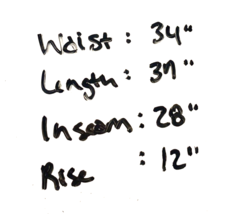 Waist : 34"
Length :
Inseam : 28"
Rise : 12"